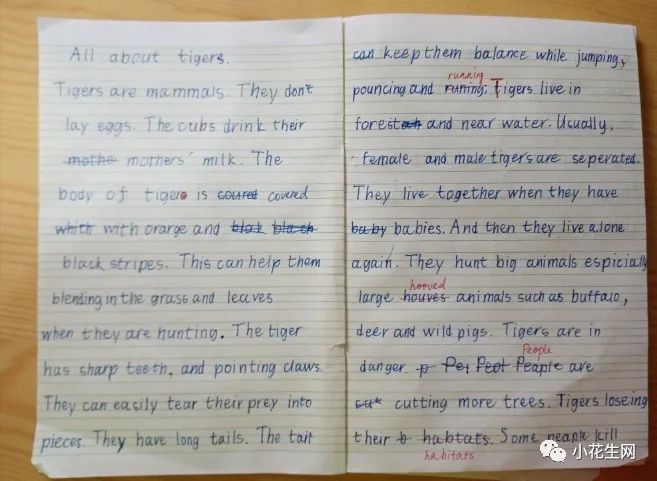 All about tigers.
Tigers are mammals. They don't
lay eggs. The cubs drink their
mothe mothers' milk. The
body of tigers is coured covered
whith with orarge and blak blach
black stripes. This can help them
blending in the grass and leaves
when they are hunting. The tiger
has sharp teeth, and pointing claws.
They can easily tear their prey into
pieces. They have long tails. The tail
can keep them balance while jumping,
running
pouncing and runing. Tigers live in
forest and near water. Usually,
female and male tigers are seperated.
They live together when they have
baby babies. And then they live alone
again. They hunt big animals espicially
hooved
large houves animals such as buffalo,
deer and wild pigs. Tigers are in
People
danger. p Pei Peot Peaple are
cutting more trees. Tigers loseing
their b habtats. Some peaple kill
habitats
小花生网